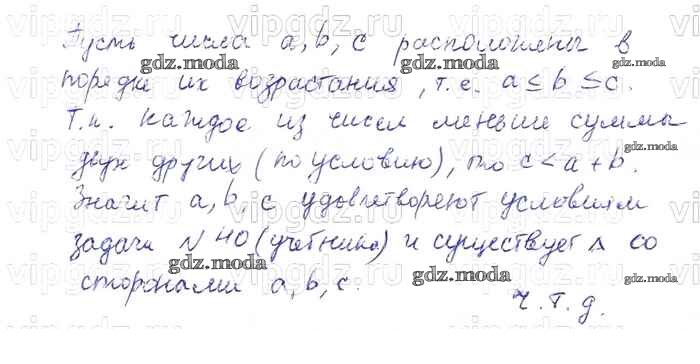 Пусть числа a, b, c расположены в
порядке их возрастания, т.е. a ≤ b ≤ c.
Т.к. каждое из чисел меньше суммы
двух других (по условию), то c < a + b.
Значит a, b, c удовлетворяют условиям
задачи N 40 (учебника) и существует Δ со
сторонами a, b, c.
ч.т.д.
gdz.moda
gdz.moda
gdz.moda
gdz.moda
gdz.moda
gdz.moda
gdz.moda
gdz.moda
gdz.moda
vipgdz.ru